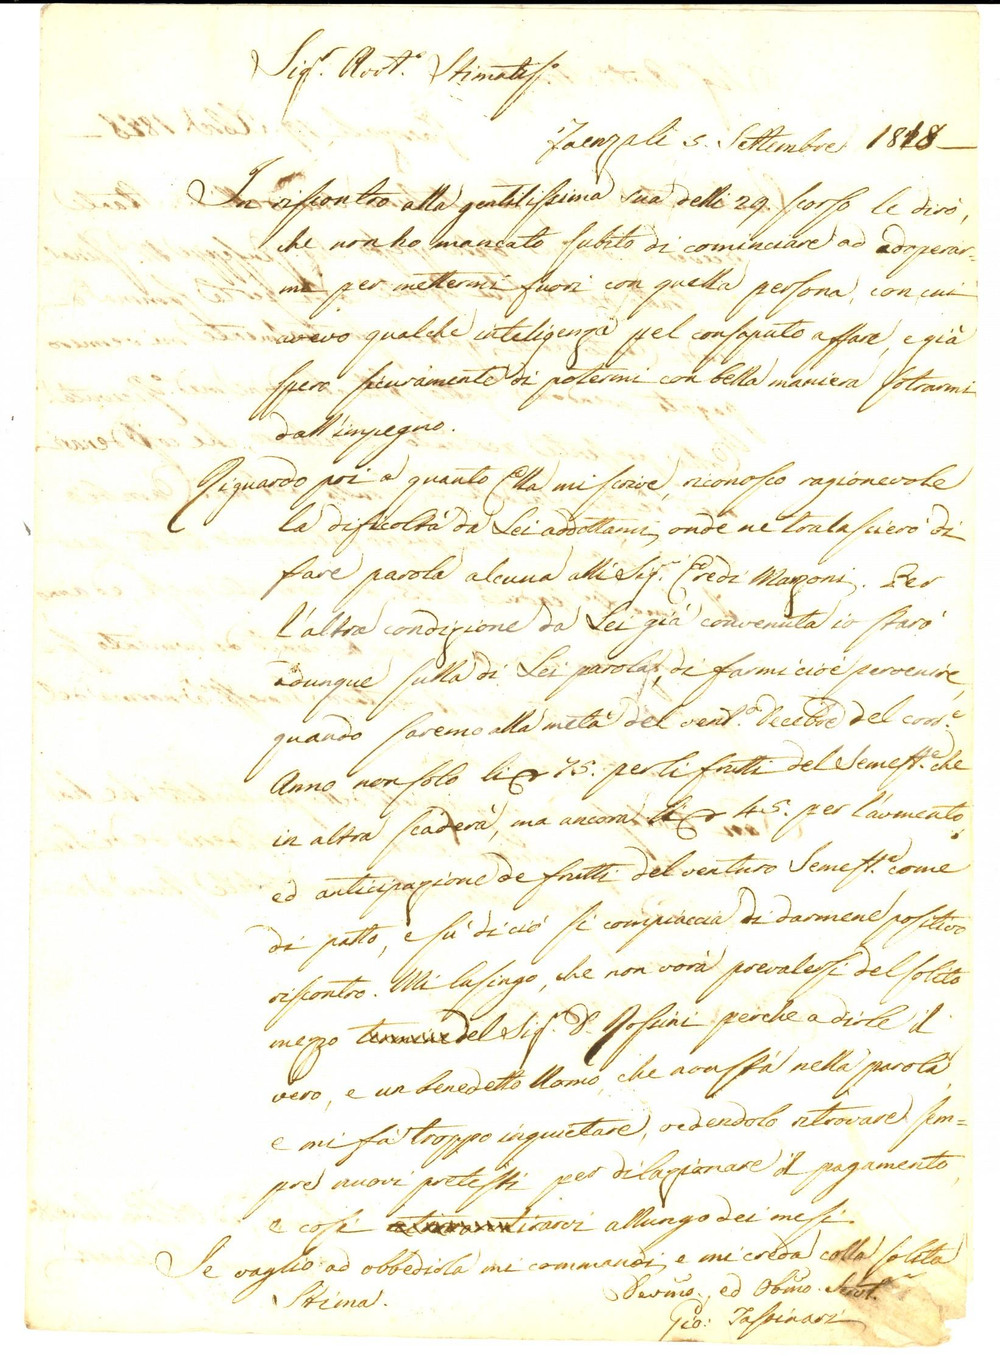 Sigr. Avvto. Stimatiss.
Faenza li 5. Settembre 1818
In riscontro alla gentilissima sua delli 29 scorso le dirò,
che non ho mancato subito di cominciare ad adoperar=
mi per mettermi fuori con quella persona, con cui
avevo qualche inteligenza pel consaputo affare, e già
spero sicuramente di potermi con bella maniera sotrarmi
dall'impegno.
Riguardo poi a quanto Ella mi scrive, riconosco ragionevole
la dificoltà da Lei addottami, onde ne tralascierò di
fare parola alcuna alli Sigri. Eredi Manzoni. Per
l'altra condizione da Lei già convenuta io starò
adunque sulla di Lei parola, di farmi cioè pervenire,
quando saremo alla metà del vento. Decebre del corre.
Anno non solo li 75. per li frutti del Semestre. che
in allra scaderà, ma ancora li 45. per l'aumento
ed anticipazione de frutti del venturo Semestre. come
di patto, e su di ciò si compiaccia di darmene positivo
riscontro. Mi lusingo, che non vorà prevalersi del solito
mezzo del Sigr. Dr. Rossini perche a dirle il
vero, e un benedetto Uomo, che non stà nella parola,
e mi fà troppo inquietare, vedendolo ritrovare sem=
pre nuovi pretesti per dilazionare il pagamento,
e così tirarci allungo dei mesi.
Se vaglio ad obbedirla mi commandi, e mi creda colla solita
Stima.
Devmo. ed Obbmo. Servre.
Gio: Tassinari